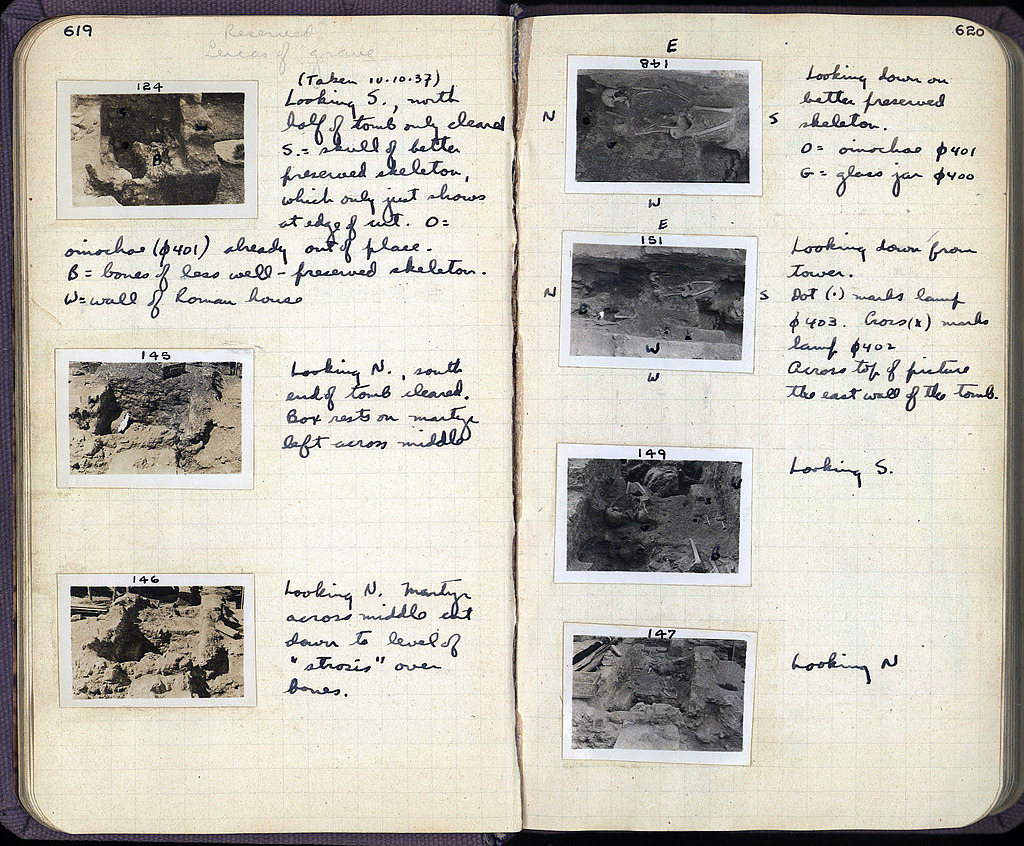 619
Reserved
Leicas of grave
124
(Taken 10.10.37)
Looking S., north
half of tomb only cleared
S. = skull of better
preserved skeleton,
which only just shows
at edge of cut. O =
oinochoe (φ401) already out of place.
B = bones of less well-preserved skeleton.
W = wall of Roman house
S
B
145
Looking N., south
end of tomb cleared.
Box rests on martyr
left across middle
146
Looking N. Martyr
across middle cut
down to level of
"strosis" over
bones.
620
E
148
N
S
W
Looking down on
better preserved
skeleton.
O = oinochoe φ401
G = glass jar φ400
E
151
N
S
W
W
Looking down from
tower.
Dot (·) marks lamp
φ403. Cross (x) marks
lamp φ402
Across top of picture
the east wall of the tomb.
149
Looking S.
147
Looking N